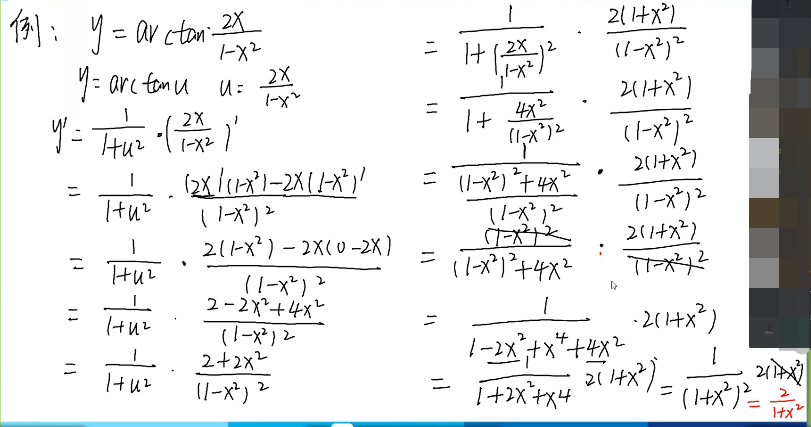 例: y = arctan 2x/(1-x²)
y = arctan u u = 2x/(1-x²)
y' = 1/(1+u²) · (2x/(1-x²))'
= 1/(1+u²) · ((2x)'(1-x²)-2x(1-x²)')/(1-x²)²
= 1/(1+u²) · (2(1-x²)-2x(0-2x))/(1-x²)²
= 1/(1+u²) · (2-2x²+4x²)/(1-x²)²
= 1/(1+u²) · (2+2x²)/(1-x²)²
= 1/(1+(2x/(1-x²))²) · 2(1+x²)/(1-x²)²
= 1/(1+4x²/(1-x²)²) · 2(1+x²)/(1-x²)²
= 1/(((1-x²)²+4x²)/(1-x²)²) · 2(1+x²)/(1-x²)²
= (1-x²)²/((1-x²)²+4x²) · 2(1+x²)/(1-x²)²
= 1/(1-2x²+x⁴+4x²) · 2(1+x²)
= 1/(1+2x²+x4) 2(1+x²) = 1/(1+x²)² 2(1+x²)
= 2/(1+x²)